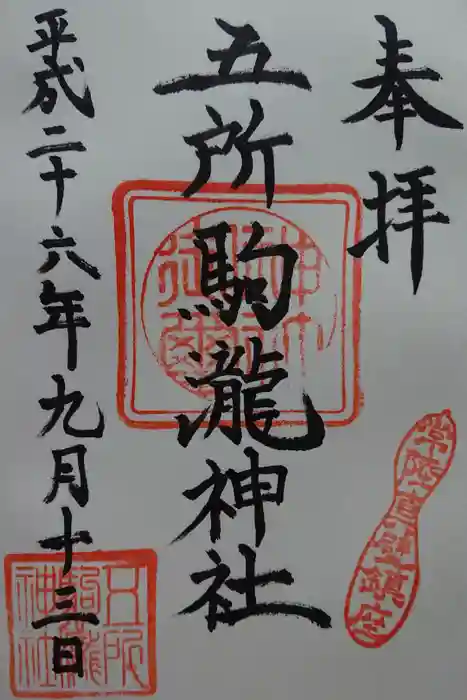 奉拝
五所駒瀧神社
平成二十六年九月十三日
五所
駒瀧
神社